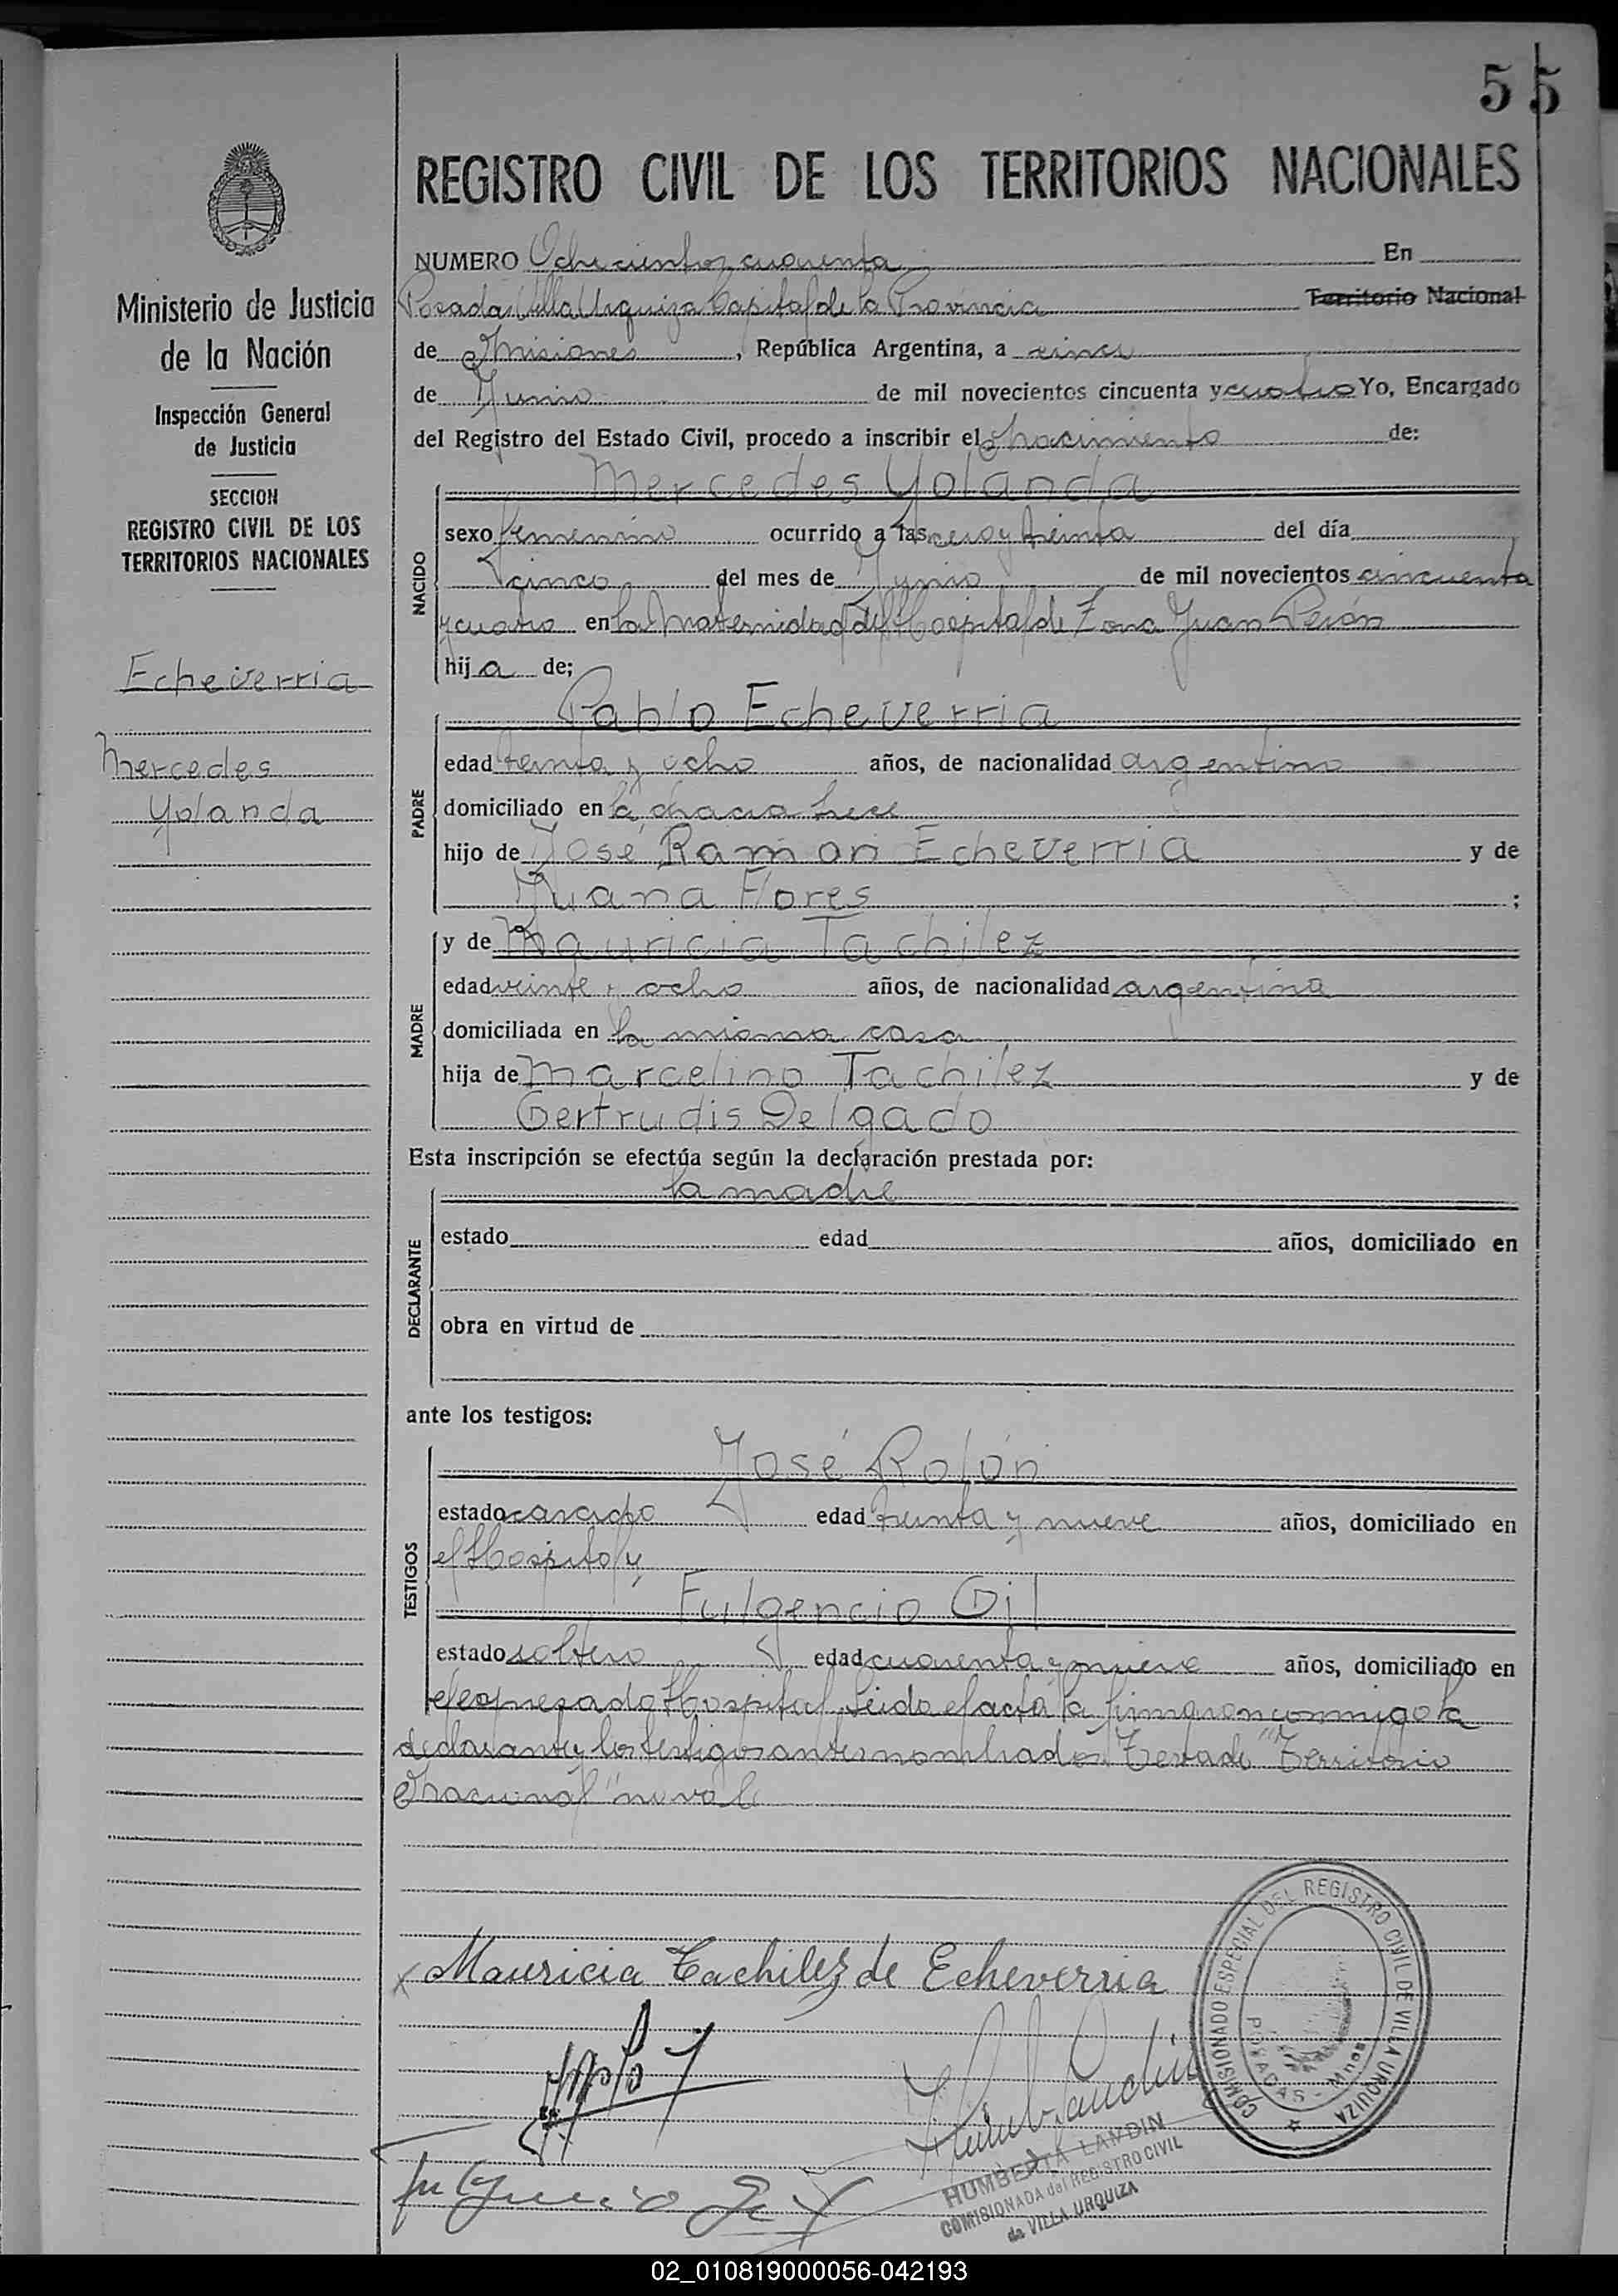 55
REGISTRO CIVIL DE LOS TERRITORIOS NACIONALES
Ministerio de Justicia
de la Nación
Inspección General
de Justicia
SECCION
REGISTRO CIVIL DE LOS
TERRITORIOS NACIONALES
Echeverria
Mercedes
Yolanda
NUMERO Ochocientos cuarenta En
Posadas Villa Urquiza Capital de la Provincia Territorio Nacional
de Misiones, República Argentina, a cinco
de Junio de mil novecientos cincuenta y cuatro Yo, Encargado
del Registro del Estado Civil, procedo a inscribir el nacimiento de:
NACIDO
Mercedes Yolanda
sexo femenino ocurrido a las cero y treinta del día
cinco del mes de Junio de mil novecientos cincuenta
y cuatro en la Maternidad del Hospital de Zona Juan Perón
hija de;
PADRE
Pablo Echeverria
edad treinta y ocho años, de nacionalidad argentino
domiciliado en la chacra trece
hijo de José Ramón Echeverria y de
Juana Flores ;
MADRE
y de Mauricia Tachilez
edad veinte y ocho años, de nacionalidad argentina
domiciliada en la misma casa
hija de Marcelino Tachilez y de
Gertrudis Delgado
Esta inscripción se efectúa según la declaración prestada por:
DECLARANTE
la madre
estado edad años, domiciliado en
obra en virtud de
ante los testigos:
TESTIGOS
José Rolón
estado casado edad treinta y nueve años, domiciliado en
el Hospital y
Fulgencio Gil
estado soltero edad cuarenta y nueve años, domiciliado en
el expresado Hospital. Leida el acta la firmaron conmigo la
declarante y los testigos antes nombrados. Testado "Territorio
Nacional" no vale
COMISIONADO ESPECIAL DEL REGISTRO CIVIL DE VILLA URQUIZA
POSADAS - Mnes
x Mauricia Tachilez de Echeverria
Fulgencio Gil
HUMBERTA LANDIN
COMISIONADA del REGISTRO CIVIL
de VILLA URQUIZA
02_010819000056-042193